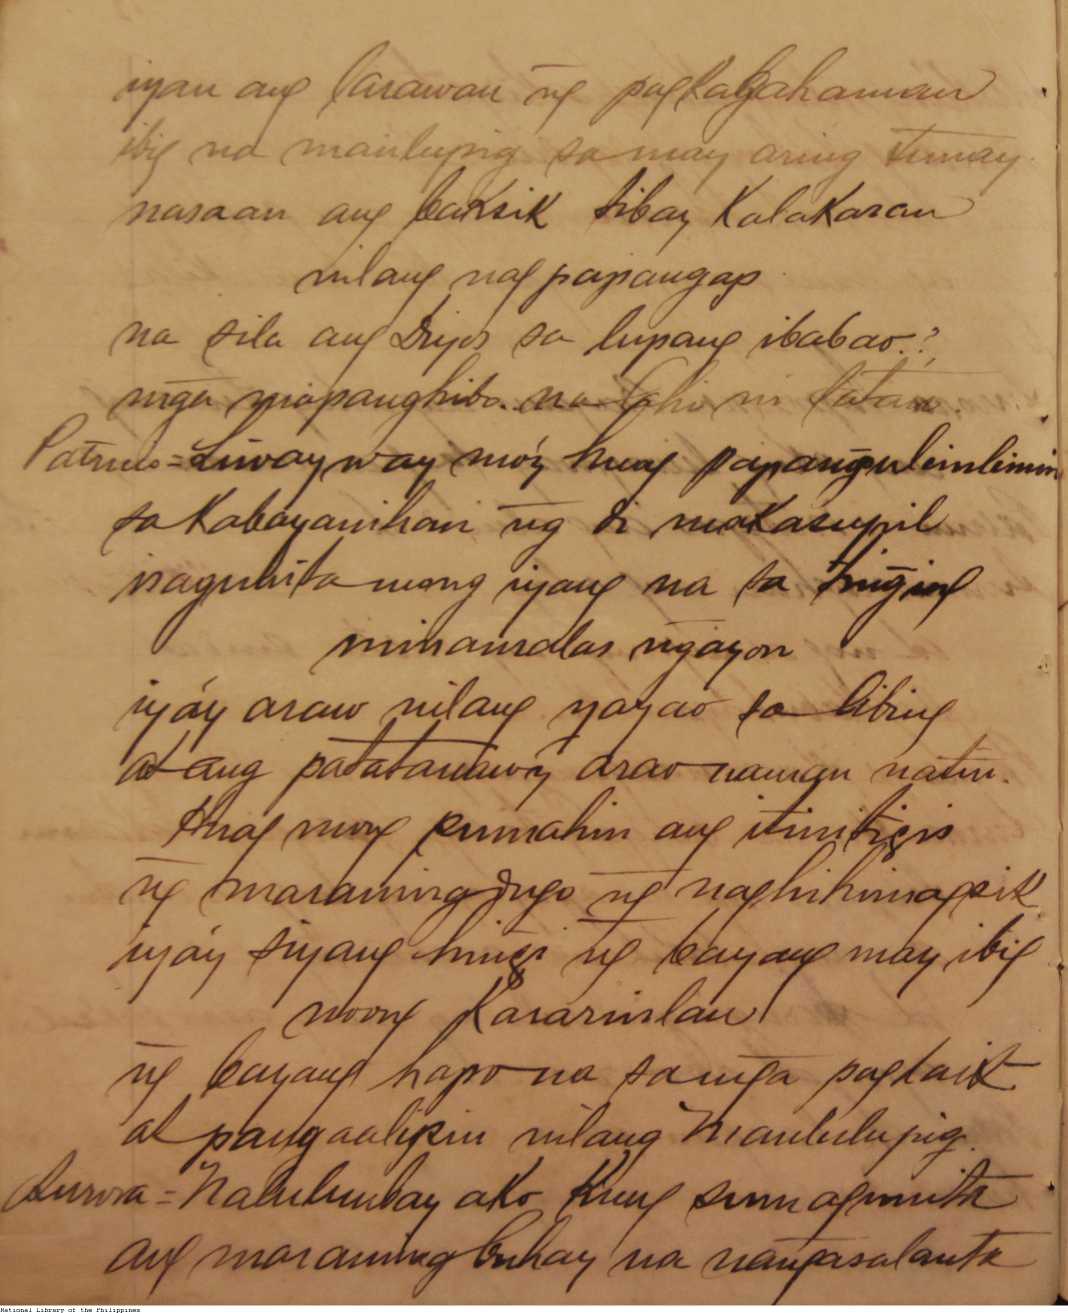 iyan ang larawan ng̃ pagkagahaman
ibig na manlupig sa may aring tunay
nasaan ang baksik tibay Kalakaran
nilang nag papangap
na sila ang Diyos sa lupang ibabao.?
mg̃a mapanghibo na lahi ni Satan.
Patricio = Liwayway mo'y huag papang̃ulimlimin
sa Kabayanihan ng̃ di makasupil
isagunita mong iyang na sa tning̃ing
minamalas ng̃ayon
iyáy araw nilang yayao sa libing
at ang patatanawi'y arao naman natin.
Huag mong punahin ang itinitigis
ng̃ maraming dugo ng̃ naghihimagsik
iyáy siyang hing̃i ng̃ bayang may ibig
noong Kasarinlan
ng̃ bayang hapo na sa mg̃a paglait
at pangaalipin nilang Manlulupig.
Aurora = Nalulumbay ako Kung sumagunita
ang maraming buhay na nang̃asalanta